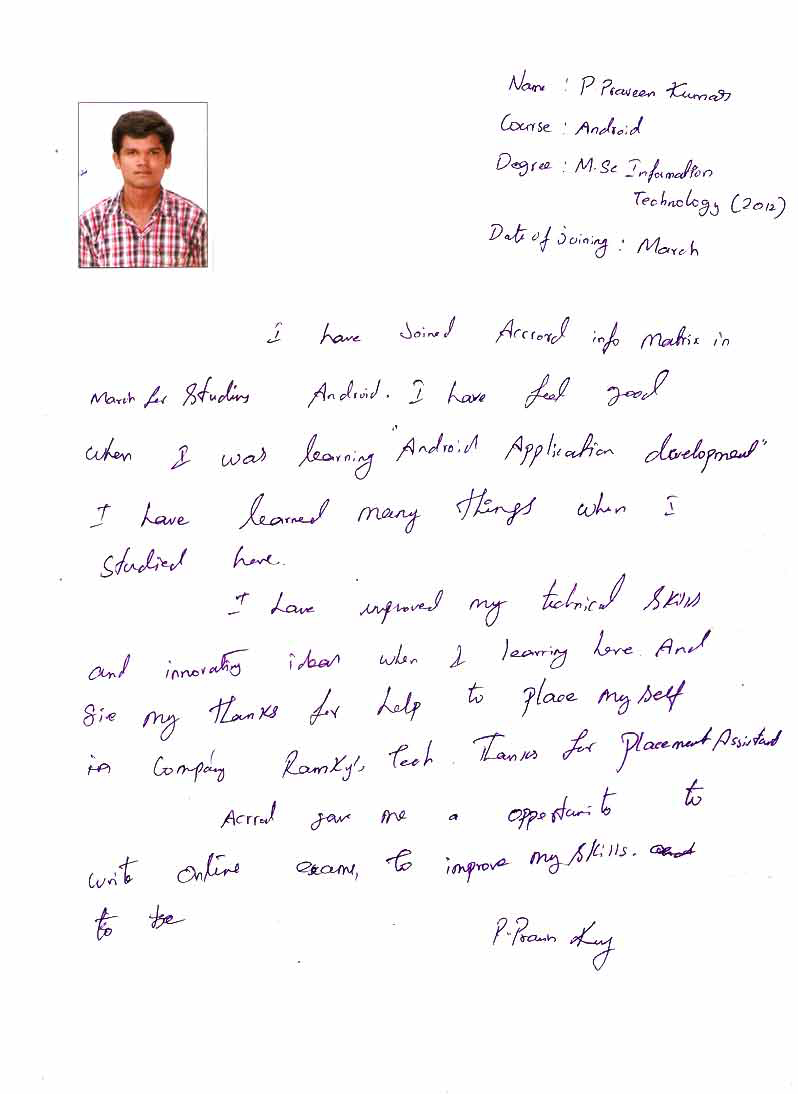 Name : P Praveen Kumar
Course : Android
Degree : M.Sc Infamation
Technology (2012)
Date of joining : March
I have Joined Accrord info Matrix in
March for Studing Android. I have feel good
when I was learning "Android Application development"
I have learned many things when I
studied here.
I have improved my technical skills
and innovating ideas when I learning here. And
Sir my thanks for help to place my self
in Company RamKy's Tech. Thanks for Placement Assistant
Accrod gave me a oppertunits to
write online exams, to improve my skills. and
to be
P. Pravn Kum